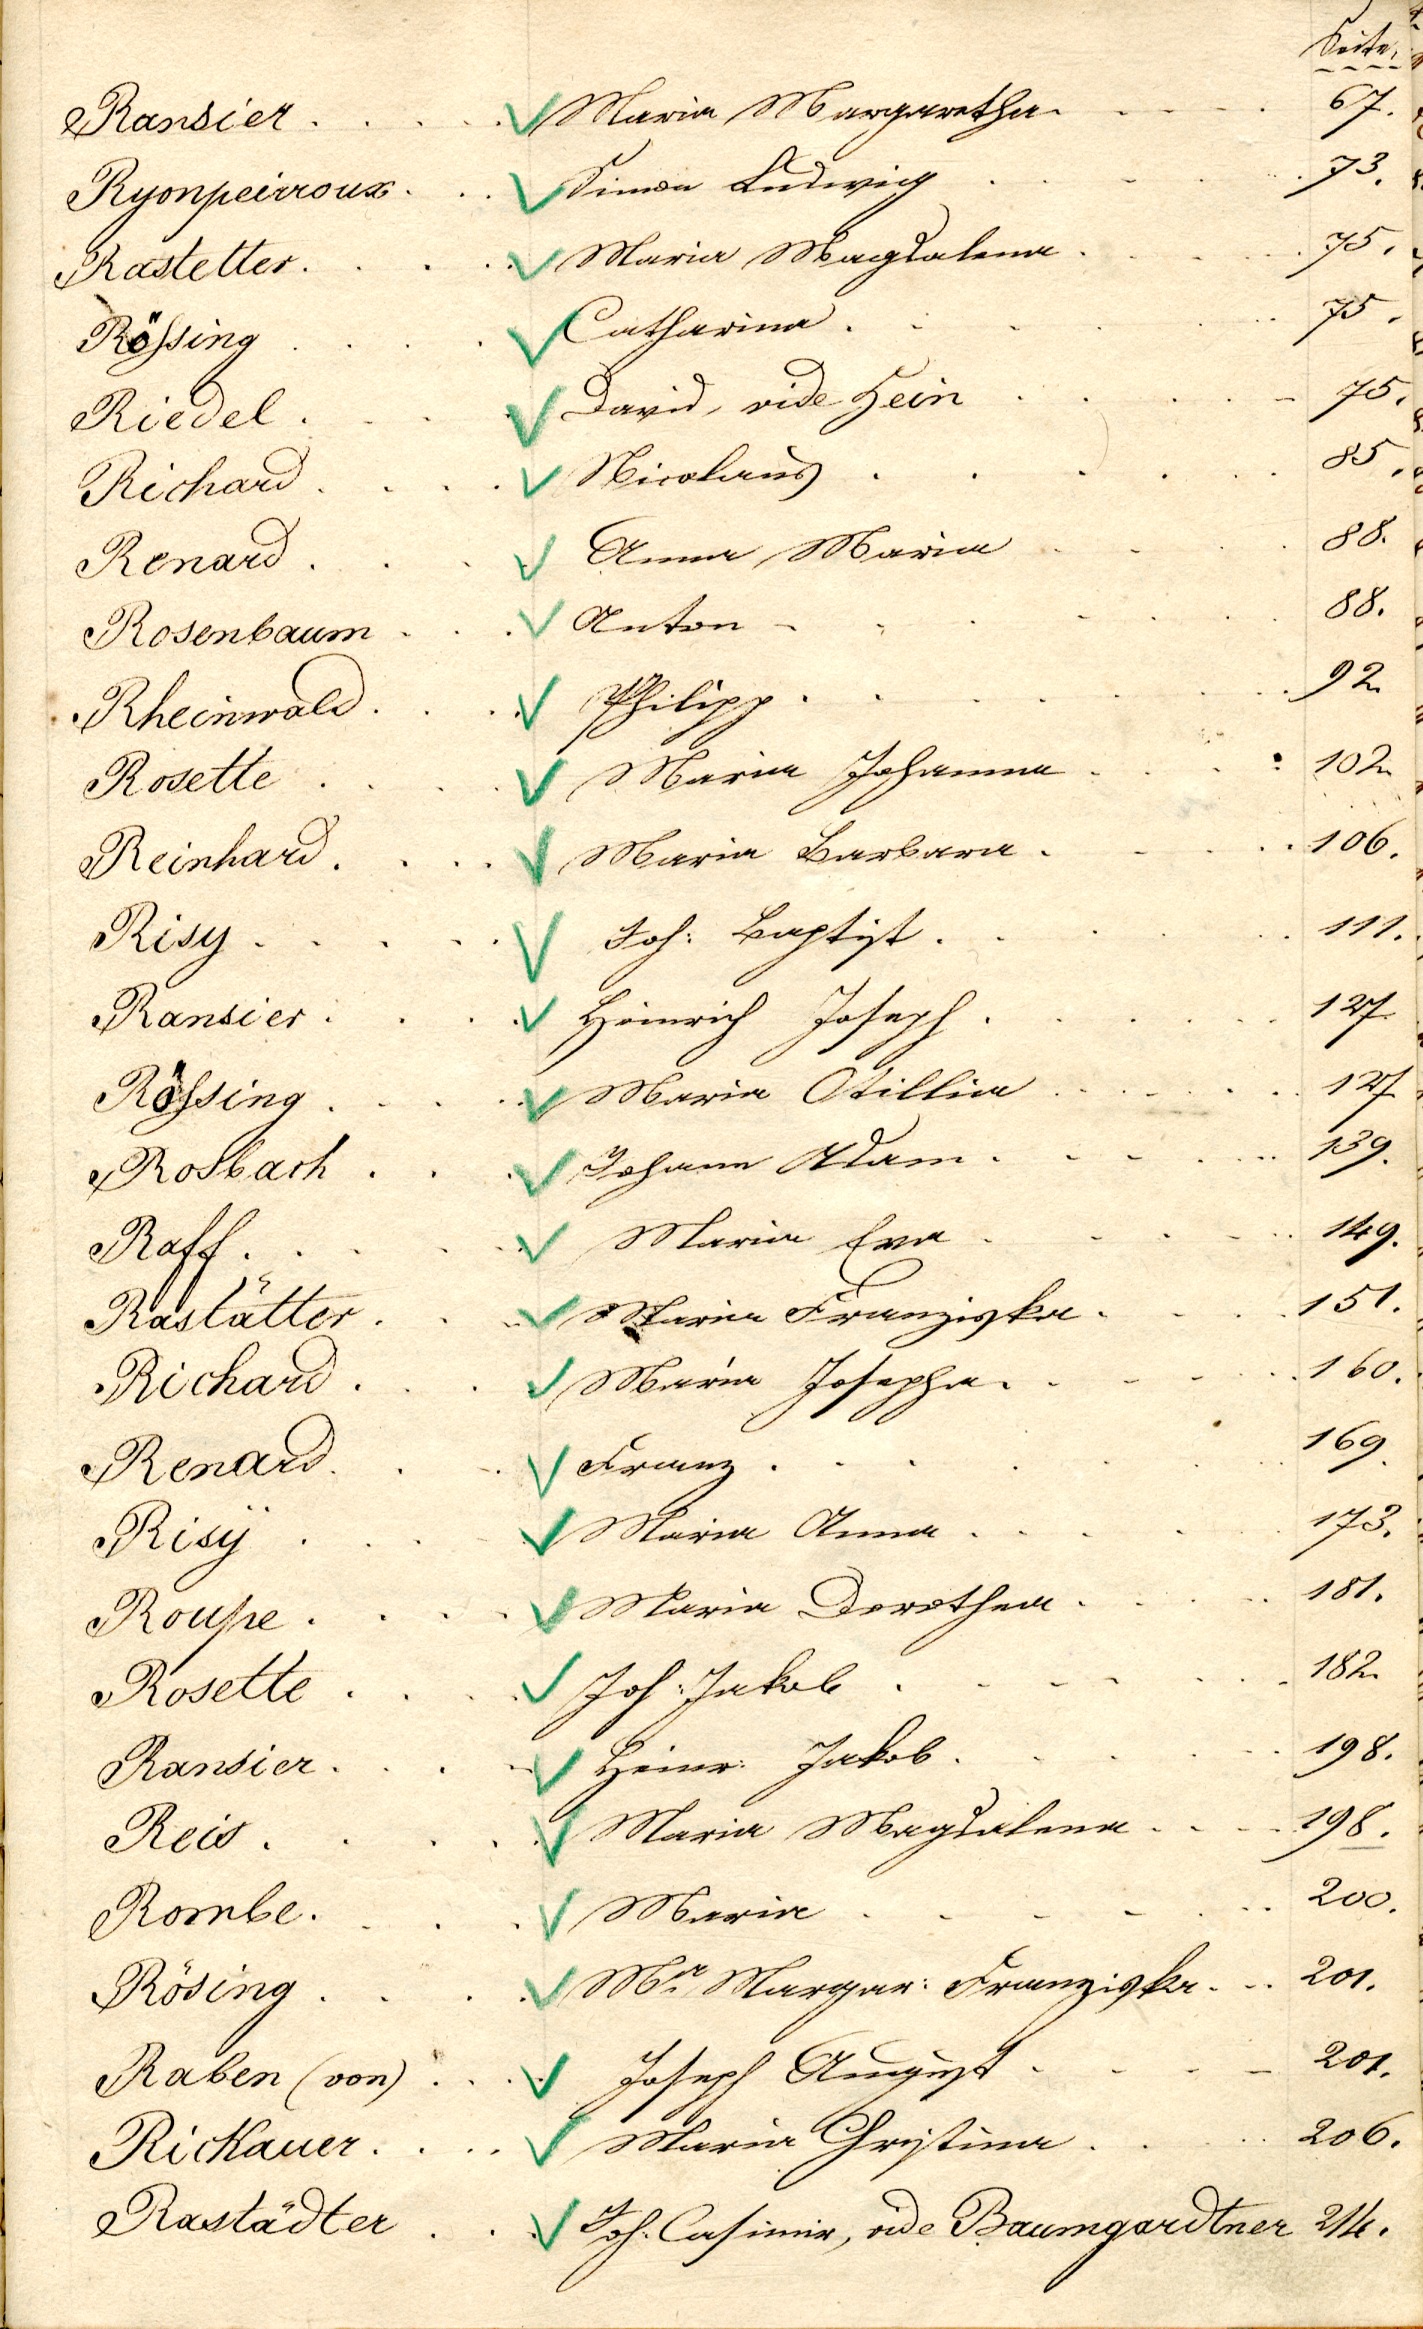 Seite.
Ransier . . . . . Maria Margaretha . . . . 67.
Ryonpeirroux . . . Simon Ludwig . . . . . 73.
Rastetter . . . . Maria Magdalena . . . . 75.
Rößing . . . . Catharina . . . . . 75.
Riedel . . . . David, vide Hein . . . . . 75.
Richard . . . . Nicolaus . . . . . 85.
Renard . . . . Anna Maria . . . . 88.
Rosenbaum . . . Anton . . . . . . 88.
Rheinwald . . . . Philipp . . . . . . 92.
Rosette . . . . Maria Johanna . . . . 102.
Reinhard . . . . Maria Barbara . . . . 106.
Risy . . . . . Joh: Baptist . . . . . 111.
Ransier . . . . Heinrich Joseph . . . . . 127.
Rößing . . . . Maria Otillia . . . . . 127.
Rosbach . . . Johann Adam . . . . . 139.
Raff . . . . . Maria Eva . . . . . 149.
Rastätter . . . Maria Franziska . . . . 151.
Richard . . . . Maria Josepha . . . . . 160.
Renard . . . Franz . . . . . . 169.
Risÿ . . . . Maria Anna . . . . . 173.
Roupe . . . . Maria Dorothea . . . . . 181.
Rosette . . . . Joh: Jakob . . . . . 182.
Ransier . . . . Heinr: Jakob . . . . . 198.
Reis . . . . . Maria Magdalena . . . . 198.
Rombe . . . . Maria . . . . . . 200.
Rösing . . . . Ma. Margar: Franziska . . . 201.
Raben (von) . . . . Joseph August . . . . 201.
Rickauer . . . . Maria Christina . . . . 206.
Rastädter . . . Joh: Casimir, vide Baumgardtner 214.